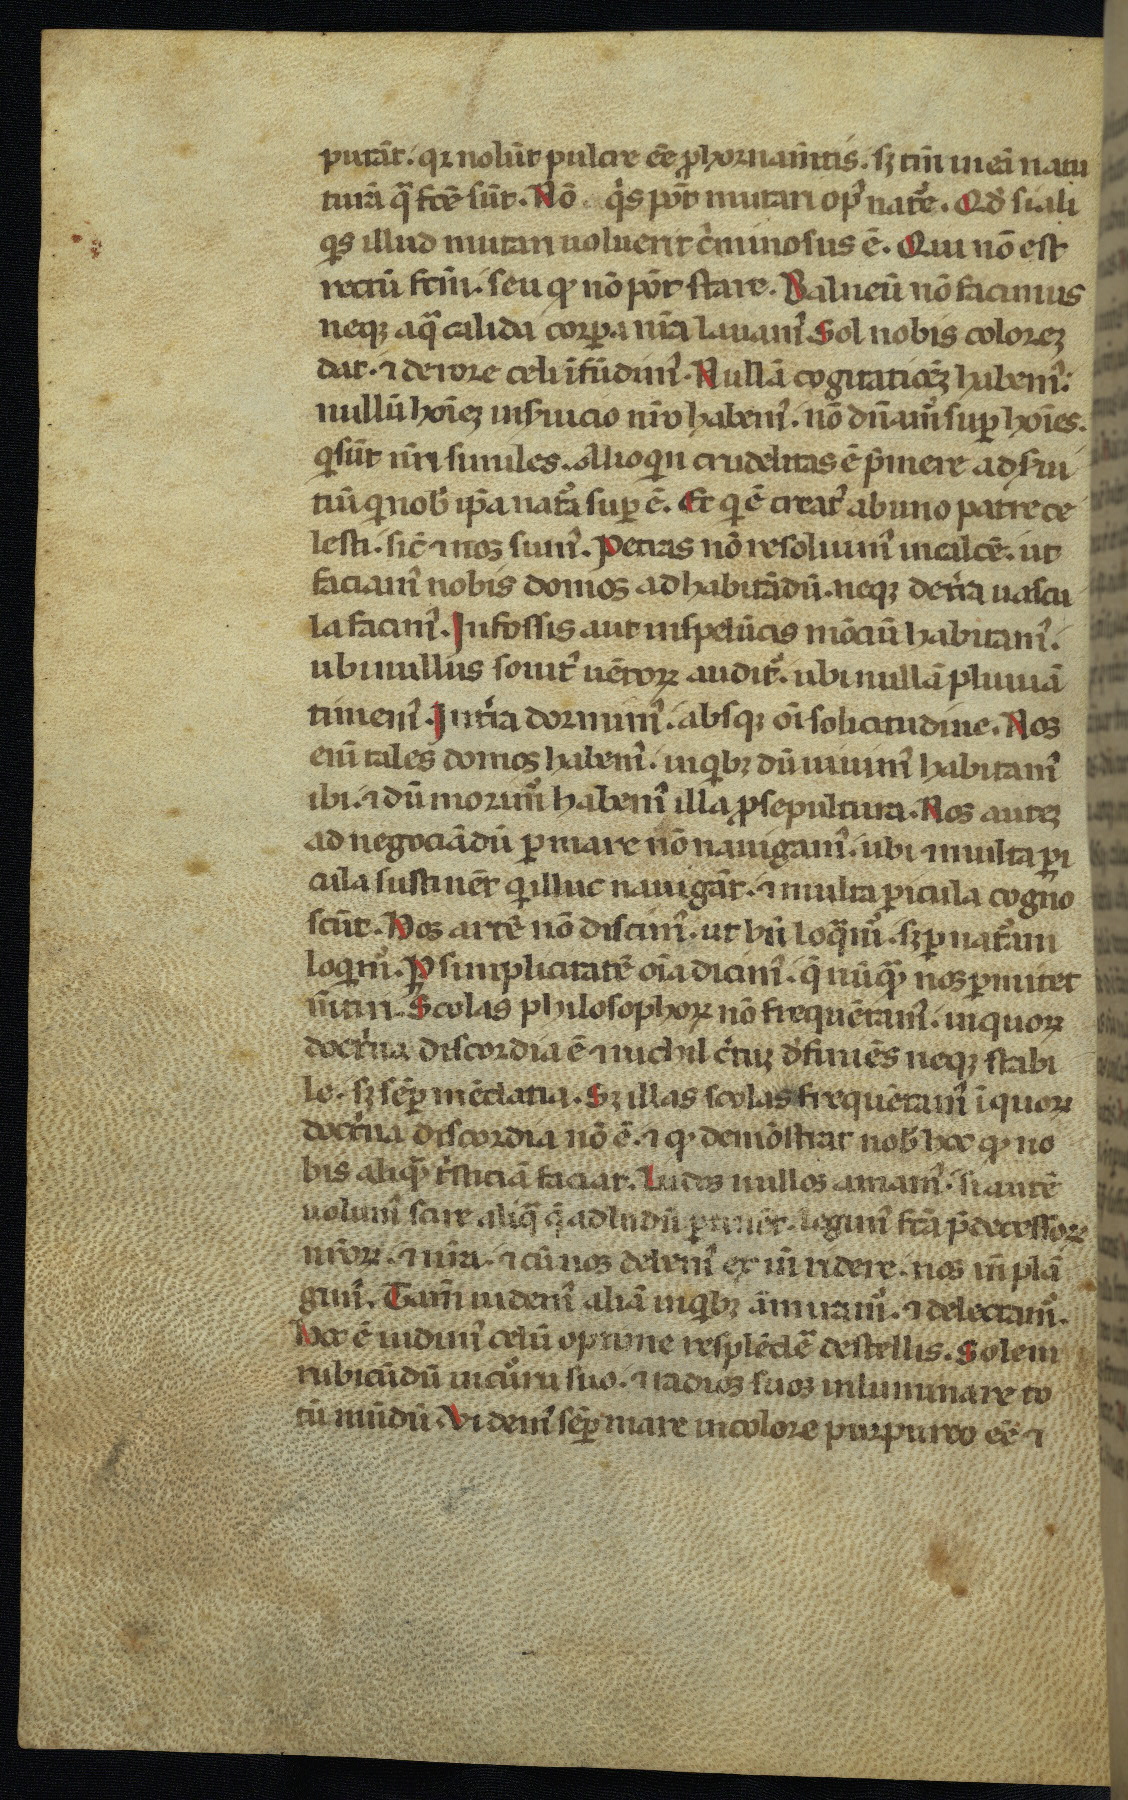 putāt. qr nolūt pulcre eē ꝓ hornam̄tis. sꝫ tm̄ in eā natu
turā qᷓ fc̄e sūt. Nō qͥs pōt mutari opꝰ natᷓe. Qd̓ si ali
qͥs illud mutari uoluerit cͥminosus ē. Qui nō est
rectū fcm̄. seu qͥ nō pōt stare. Balneū nō facimus
neqꝫ aqᷓ calida corꝑa nr̄a lauamꝰ. Sol nobis coloreꝫ
dat. ⁊ de rore celi īfūdimꝰ. Nullā cogitatiōeꝫ habemꝰ.
nullū hoīeꝫ in seruicio nr̄o habemꝰ. nō dn̄amᷓ suꝑ hoīes.
qͥ sūt nr̄i similes. Alioqͥn crudelitas ē p̄mere ad serui
tiū qͥ nob̓ ip̄a natᷓa suꝑ ē. Et qͥ ē creatꝰ ab uno patre ce
lesti. sic̄ ⁊ nos sumꝰ. Petras nō resoluimꝰ in calcē. ut
faciamꝰ nobis domos ad habitādū. neqꝫ de tr̄ra uascu
la facimꝰ. In fossis aut in spelūcis mōtiū habitamꝰ.
ubi nullus sonitꝰ uētoꝝ auditᷓ. ubi nullā pluuiā
timemꝰ. In tr̄ra dormimꝰ. absqꝫ oī solicitudine. Nos
eni tales domos habemꝰ. in qͥbꝫ dū uiuimꝰ habitamꝰ
ibi. ⁊ dū morimᷓ habemꝰ illa ꝓ sepultura. Nos auteꝫ
ad negociādū ꝑ mare nō nauigamꝰ. ubi ⁊ multa ꝑi
cula sustinēt qͥ illuc nauigāt. ⁊ multa ꝑicula cogno
scūt. Nos artē nō discimꝰ. ut bn̄ loqᷓmᷓ. sꝫ ꝑ natᷓam
loqͥmᷓ. Ꝑ simplicitatē oīa dicimꝰ. q̄ nūqᷓ nos ꝑmittet
m̄tiri. Scolas philosophoꝝ nō frequētamꝰ. in quoꝝ
doctͥna discordia ē ⁊ nichil c̄tuꝫ d̓finiēs neqꝫ stabi
le. sꝫ sēꝑ mēdatia. Sꝫ illas scolas frequētamꝰ ī quoꝝ
doctͥna discordia nō ē. ⁊ qͥ demōstrat nob̓ hoc qͥ no
bis aliqᷓ tͥsticiā faciat. Ludos nullos amamꝰ. si autē
uolumꝰ scire aliqᷓ q̄ ad ludū ꝑtinēt. legimꝰ fc̄a p̄decessoꝝ
nr̄oꝝ. ⁊ nr̄a. ⁊ cū nos debemꝰ ex m̄ ridere. nos m̄ plā
gimꝰ. Tam̄ uidemꝰ aliā in qͥbꝫ āmiramᷓ. ⁊ delectamᷓ.
Hoc ē uidimꝰ celū optime resplēdē̄ de stellis. Solem
rubicūdū in cᷓru suo. ⁊ radios suos inluminare to
tū mūdū. Videmꝰ sēꝑ mare in colore purpureo eē ⁊